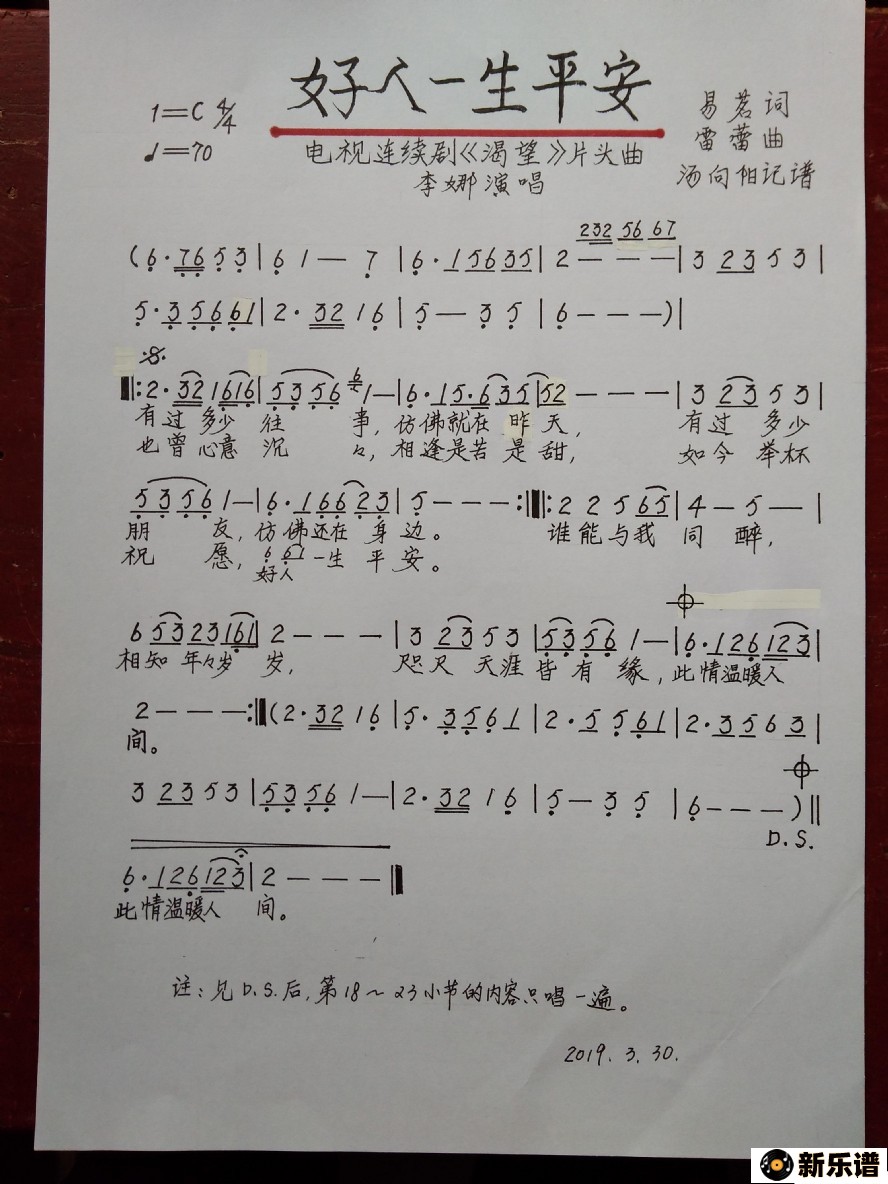 好人一生平安
1=C 4/4
♩=70
电视连续剧《渴望》片头曲
李娜演唱
易茗词
雷蕾曲
汤向阳记谱
232 56 67
(6·76 5 3|6 1—7|6·1 563 5|2———|3 23 5 3|
5·3 56 61|2·32 1 6|5—3 5|6———)|
𝄋
‖:2·32 1616|53 56 6 1—|6·1 5·6 35|52———|3 23 5 3|
有过多少往事,仿佛就在昨天, 有过多少
也曾心意沉々,相逢是苦是甜, 如今举杯
53 56 1—|6·1 66 23|5———:‖:2 2 5 65|4—5—|
朋友,仿佛还在身边。 谁能与我同醉,
祝愿, 6 61 一生平安。
好人
6 53 23 161|2———|3 23 5 3|53 56 1—|6·1 26 123|
相知年々岁岁, 咫尺天涯皆有缘,此情温暖人
2———:‖(2·32 1 6|5·3 56 1|2·5 5 61|2·35 6 3|
间。
3 23 5 3|53 56 1—|2·32 1 6|5—3 5|6———)‖
D.S.
6·1 26 123|2———‖
此情温暖人间。
注:见D.S.后,第18~23小节的内容只唱一遍。
2019.3.30.
新乐谱